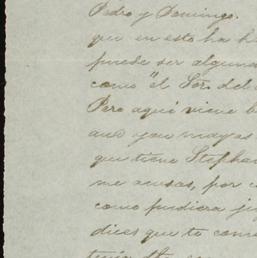 Pedro y Domingo.
que en esto ha h
puede ser alguna
como "el Sor. del
Pero aquí viene b
and you mayas
que tiene Stephan
me acusas, por c
como pudiera ju
dices que te com